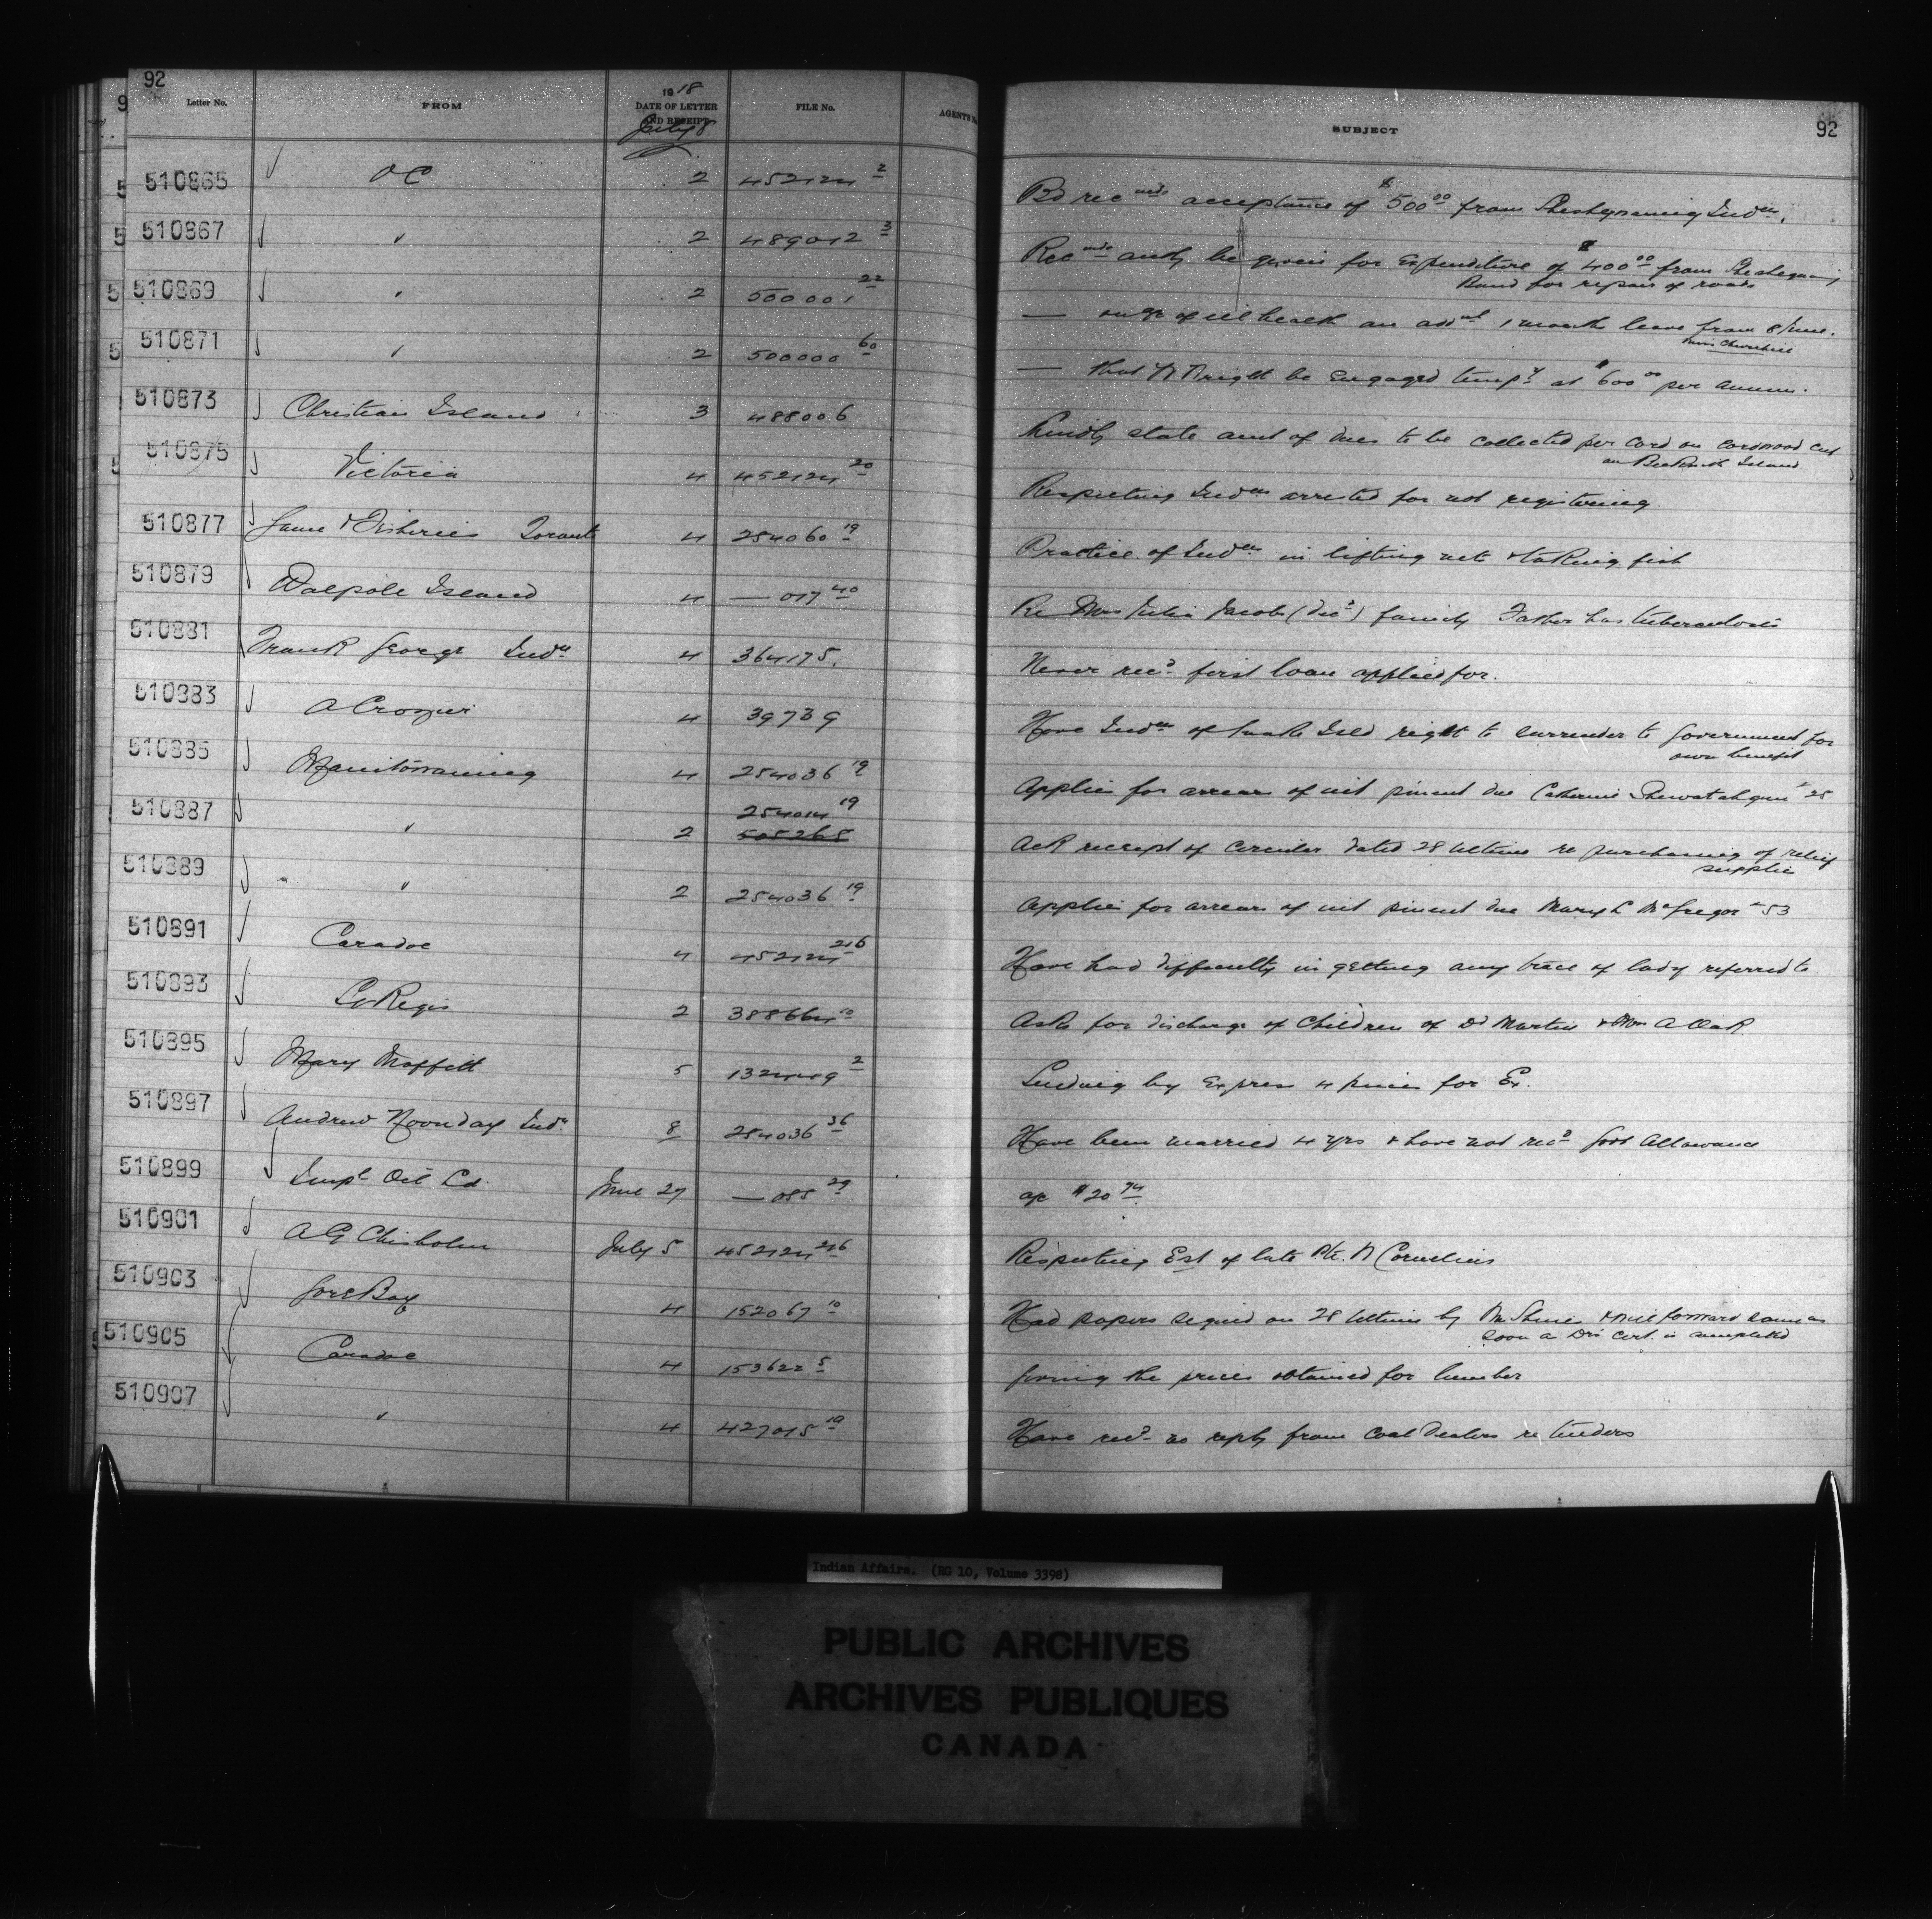 92
Letter No. FROM 1918 DATE OF LETTER AND RECEIPT FILE No. AGENT'S SUBJECT 92
July 8
510865 O C 2 452124 2 Bd rec mds acceptance of $500 00 from Sheshegwaning Inds.
510867 " 2 489012 3 Rec mds auth be given for Expenditure of $400 00 from Sheshegwaning
Band for repair of roads
510869 " 2 500001 22 — on a/c of ill health an add nl 1 month leave from 8 June.
Miss Churchill
510871 " 2 500000 60 — that might be Engaged temp y at $600 00 per annum.
510873 Christian Island 3 488006 Kindly state amt of dues to be collected per cord on cordwood cut
on Island
510875 Victoria 4 452124 20 Respecting Inds arrested for not registering
510877 Game & Fisheries Toronto 4 254060 19 Practice of Inds in lifting nets & taking fish
510879 Walpole Island 4 — 017 40 Re Mrs Julia Jacobs (Dec d) family Father has tuberculosis
510881 Frank George Ind n 4 364175. Never rec d first loan applied for.
510883 A Crozier 4 39739 Have Inds of Snake Isld right to surrender to Government for
own benefit
510885 Manitowaning 4 254036 19 Applies for arrears of int pment due Catherine # 25
510887 " 2 254014 19
505265 Ack receipt of circular dated 28 ultimo re purchasing of relief
supplies
510889 " 2 254036 19 Applies for arrears of int pment due Mary L McGregor # 53
510891 Caradoc 4 452124 216 Have had difficulty in getting any trace of lady referred to
510893 St Regis 2 388664 10 Asks for discharge of Children of Dd Martin & Mrs A Oak
510895 Mary Moffitt 5 132449 2 Sending by Express 4 for Ex.
510897 Andrew Noonday Ind n 8 254036 36 Have been married 4 yrs & have not rec d Govt Allowance
510899 Imp l Oil Co June 27 — 085 29 a/c $20 74
510901 A G Chisholm July 5 452124 216 Respecting Est of late Pte. N Cornelius
510903 Gore Bay 4 152067 10 Had papers signed on 28 ultimo by & will forward same as
soon as Drs Cert. is completed
510905 Caradoc 4 153622 5 Giving the prices obtained for lumber
510907 " 4 427015 19 Have rec d no reply from Coal Dealers re tenders
Indian Affairs. (RG 10, Volume 3398)
PUBLIC ARCHIVES
ARCHIVES PUBLIQUES
CANADA